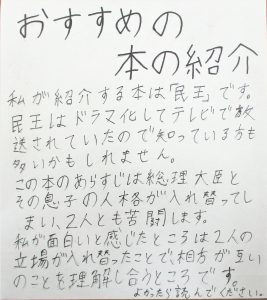 おすすめの
本の紹介
私が紹介する本は「民王」です。
民王はドラマ化してテレビで放
送されていたので知っている方も
多いかもしれません。
この本のあらすじは総理大臣と
その息子の人格が入れ替ってし
まい、2人とも苦闘します。
私が面白いと感じたところは2人の
立場が入れ替ったことで相方が互い
のことを理解し合うところです。
よかったら読んでください。